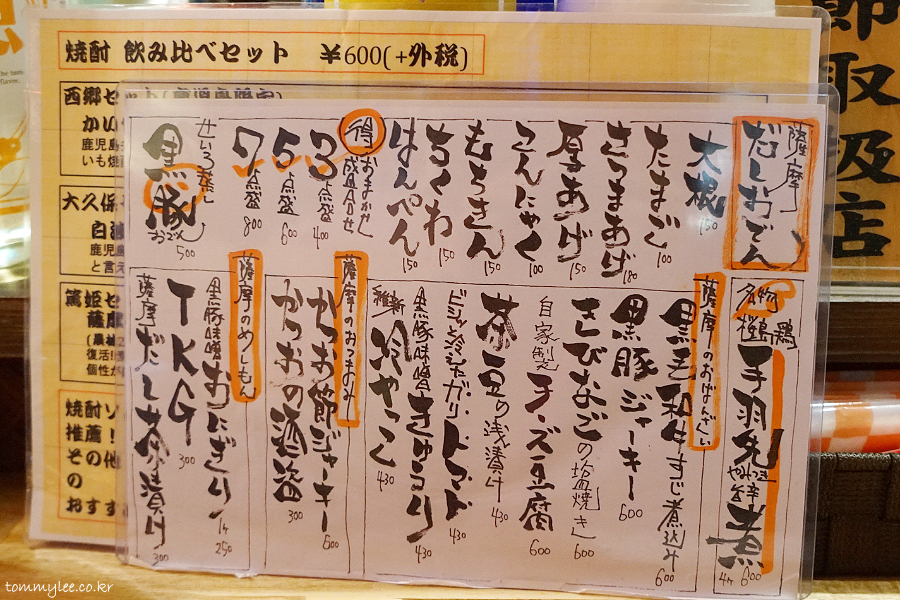 焼酎 飲み比べセット ¥600(+外税)
西郷セット(鹿児島限定)
かい
鹿児島
いも焼
大久保
白
鹿児島
と言え
篤姫セ
薩摩
復活!
個性が
焼酎ソ
推薦!
その他
の
おすす
取扱店
薩摩
だしおでん
大根 150
たまご 100
さつまあげ 180
厚あげ 150
こんにゃく 100
もちきん 150
ちくわ 150
はんぺん 150
得 おまかせ成盛合わせ
3点盛 400
5点盛 600
7点盛 800
せいろ蒸し
黒豚 おこん 500
名物
桜島鶏
手羽先
やみつき
煮 4ヶ 600
薩摩のおばんざい
黒毛和牛すじ煮込み 600
黒豚ジャーキー 600
きびなごの塩焼き 600
自家製チーズ豆腐 600
茶豆の浅漬け 430
ビシッと冷したガリトマト 430
黒豚味噌きゅうり 430
維新 冷やっこ 430
薩摩のおつまみ
かつお節ジャーキー 600
かつおの酒盗 300
薩摩のめしもん
黒豚味噌おにぎり 1ヶ 250
TKG 300
薩摩だし茶漬け 300
tommylee.co.kr